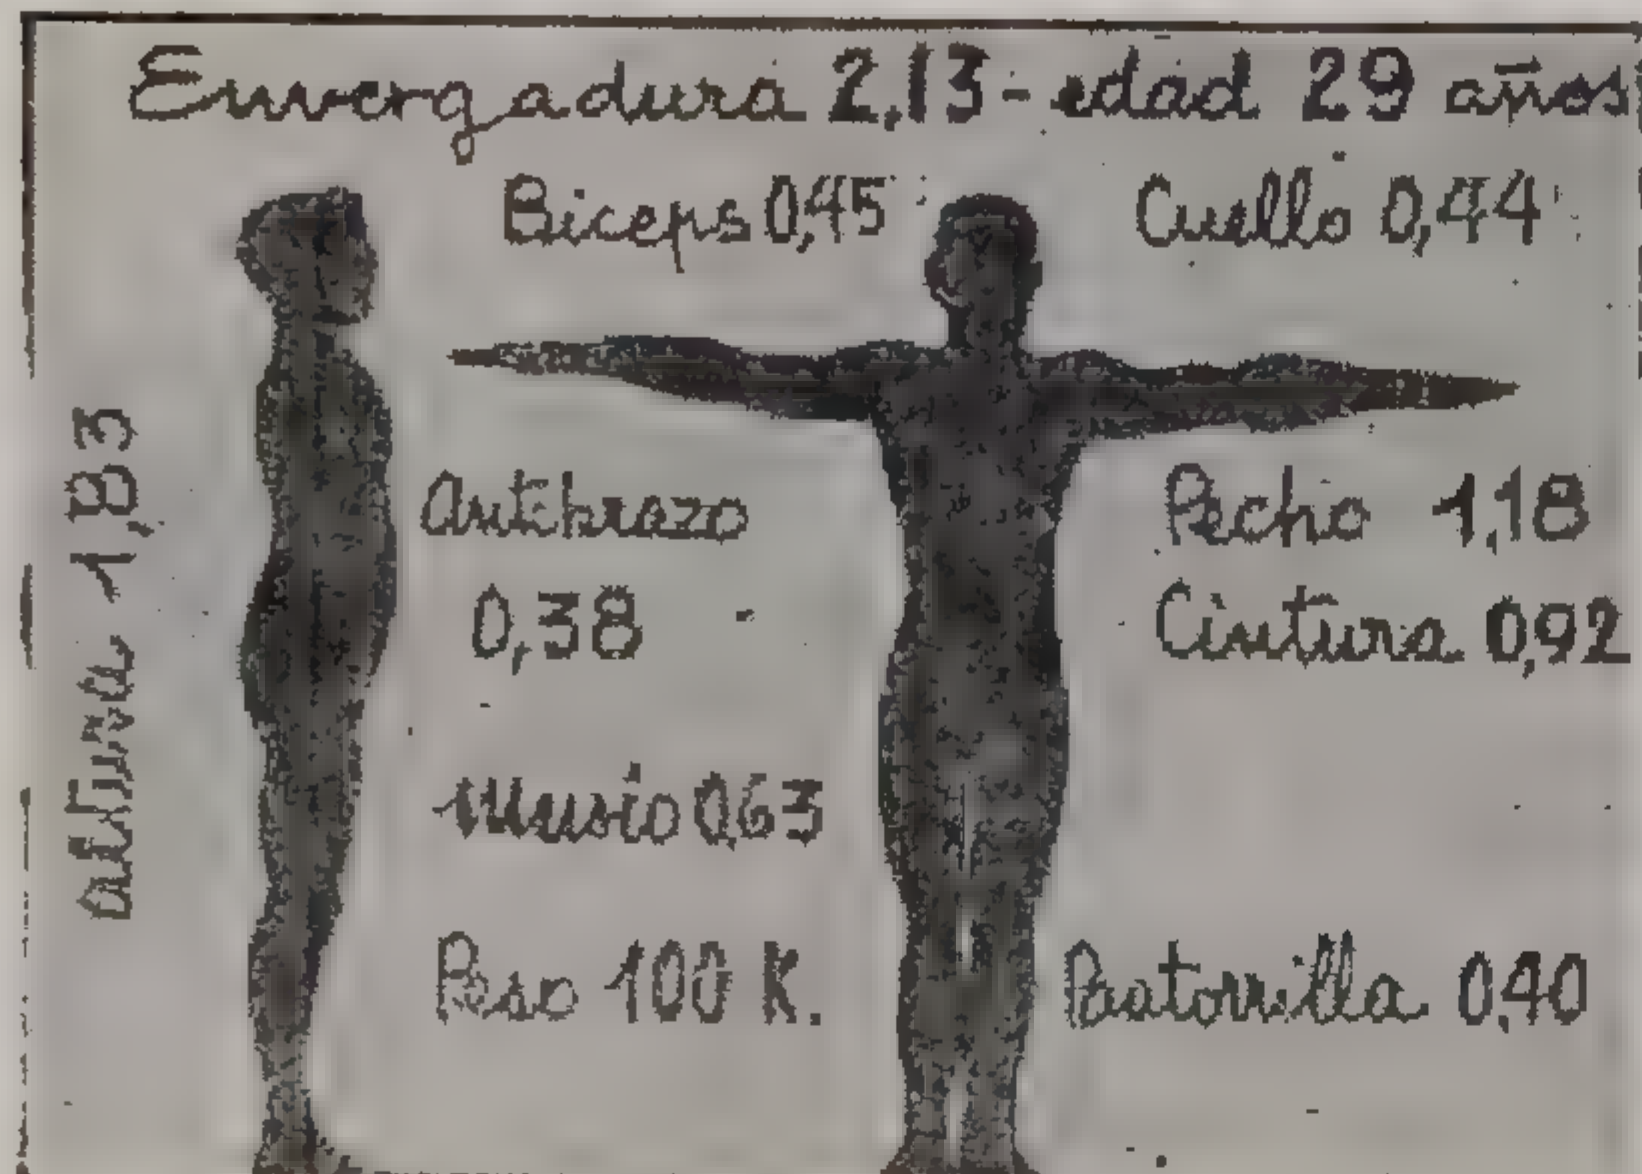 Envergadura 2,13 - edad 29 años
Biceps 0,45
Cuello 0,44
altura 1,83
Antibrazo
0,38
Pecho 1,18
Cintura 0,92
Muslo 0,63
Peso 100 K.
Pantorrilla 0,40